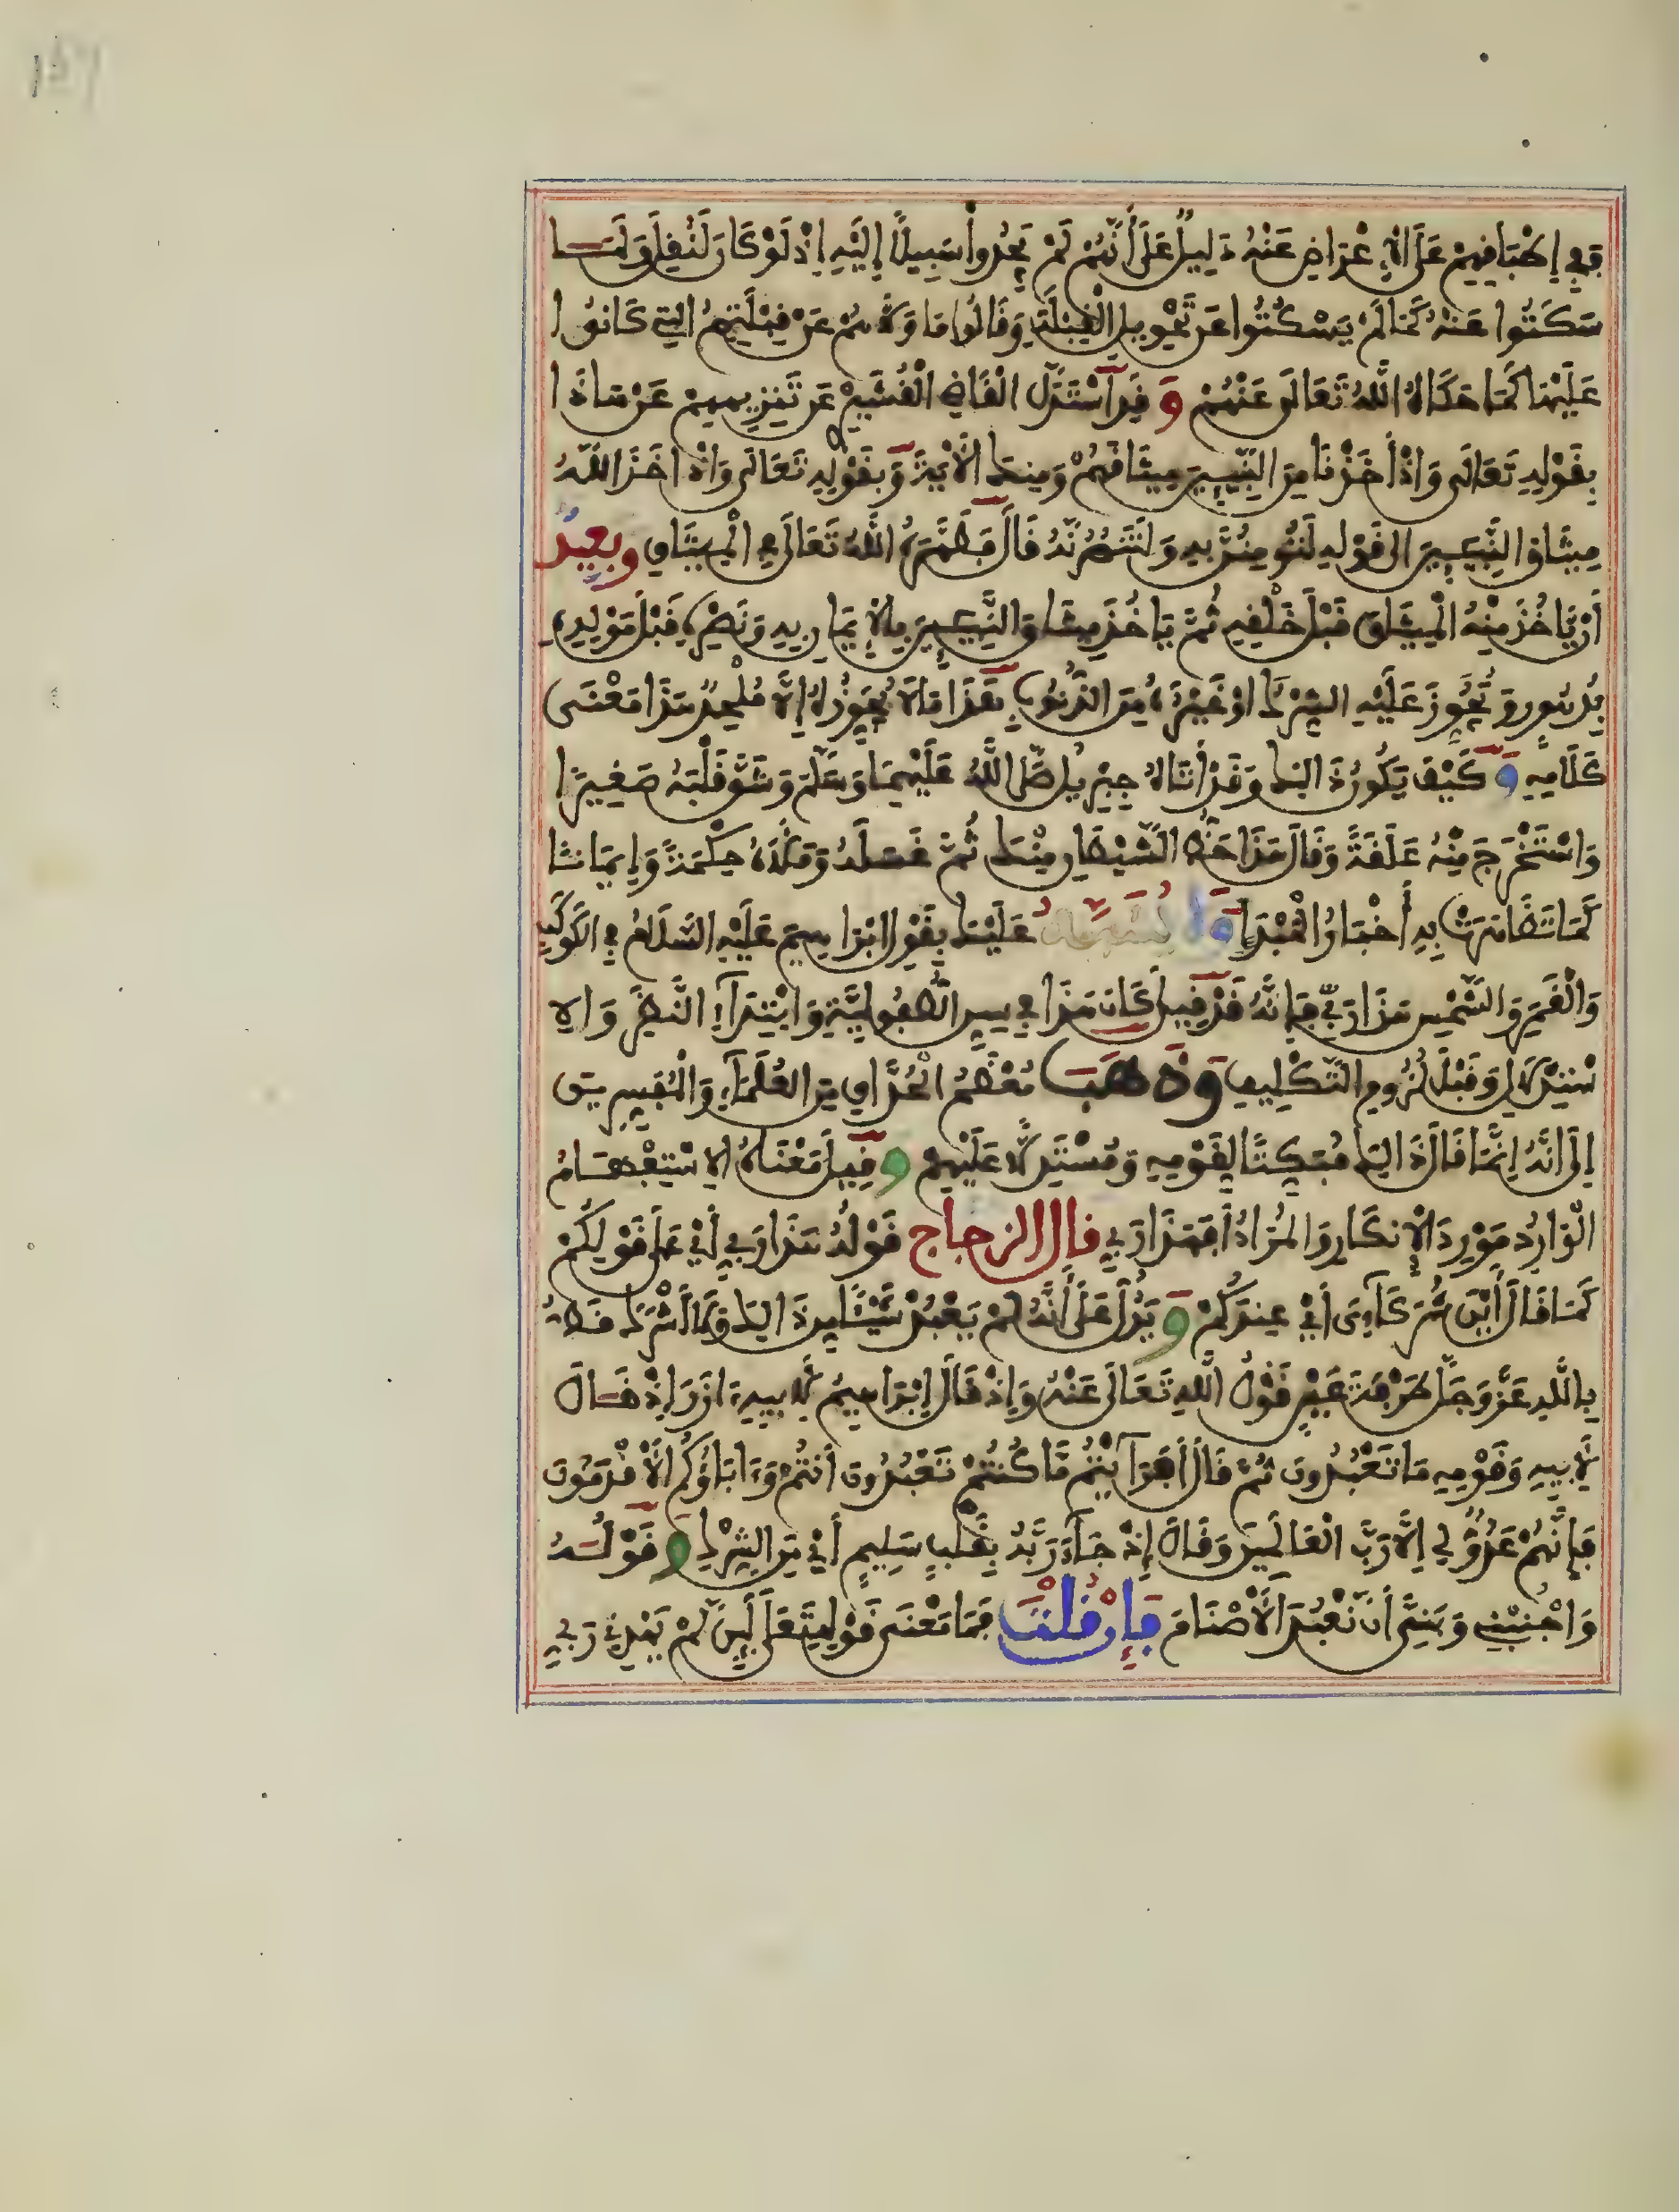 فَفِي إِطْبَاقِهِمْ عَلَى الْإِعْرَاضِ عَنْهُ دَلِيلٌ عَلَى أَنَّهُمْ لَمْ يَجِدُوا سَبِيلًا إِلَيْهِ إِذْ لَوْ كَانَ لَنُقِلَ وَلَمَا
سَكَتُوا عَنْهُ كَمَا لَمْ يَسْكُتُوا عَنْ تَحْوِيلِ الْقِبْلَةِ وَقَالُوا مَا وَلَّاهُمْ عَنْ قِبْلَتِهِمُ الَّتِي كَانُوا
عَلَيْهَا كَمَا حَكَاهُ اللَّهُ تَعَالَى عَنْهُمْ وَقَدِ اسْتَدَلَّ الْقَاضِي الْقُشَيْرِيُّ عَنْ تَنْزِيهِهِمْ عَنْ هَاذَا
بِقَوْلِهِ تَعَالَى وَإِذْ أَخَذْنَا مِنَ النَّبِيِّينَ مِيثَاقَهُمْ وَمِنْكَ الْآيَةَ وَبِقَوْلِهِ تَعَالَى وَإِذْ أَخَذَ اللَّهُ
مِيثَاقَ النَّبِيِّينَ إِلَى قَوْلِهِ لَتُومِنُنَّ بِهِ وَلَتَنْصُرُنَّهُ قَالَ فَطَهَّرَهُ اللَّهُ تَعَالَى فِي الْمِيثَاقِ وبعيدٌ
أَنْ يَاخُذَ مِنْهُ الْمِيثَاقَ قَبْلَ خَلْقِهِ ثُمَّ يَاخُذَ مِيثَاقَ النَّبِيِّينَ بِالْإِيمَانِ بِهِ وَنَصْرِهِ قَبْلَ مَوْلِدِهِ
بِدُهُورٍ وَيُجَوِّزَ عَلَيْهِ الشِّرْكَ أَوْ غَيْرَهُ مِنَ الذُّنُوبِ هَذَا مَا لَا يُجَوِّزُهُ إِلَّا مُلْحِدٌ هَذَا مَعْنَى
كَلَامِهِ وَكَيْفَ يَكُونُ ذَالِكَ وَقَدْ أَتَاهُ جِبْرِيلُ صَلَّى اللَّهُ عَلَيْهِمَا وَسَلَّمَ وَشَقَّ قَلْبَهُ صَغِيرًا
وَاسْتَخْرَجَ مِنْهُ عَلَقَةً وَقَالَ هَذَا حَظُّ الشَّيْطَانِ مِنْكَ ثُمَّ غَسَلَهُ وَمَلَأَهُ حِكْمَةً وَإِيمَانًا
كَمَا تَظَاهَرَتْ بِهِ أَخْبَارُ الْمَبْدَإِ وَلَا يُشَبَّهُ عَلَيْكَ بِقَوْلِ إِبْرَاهِيمَ عَلَيْهِ السَّلَامُ فِي الْكَوْكَبِ
وَالْقَمَرِ وَالشَّمْسِ هَذَا رَبِّي فَإِنَّهُ قَدْ قِيلَ كَانَ هَذَا فِي سِنِّ الطُّفُولِيَّةِ وَابْتِدَاءِ النَّظَرِ وَالِا
سْتِدْلَالِ وَقَبْلَ لُزُومِ التَّكْلِيفِ وَذَهَبَ مُعْظَمُ الْحُذَّاقِ مِنَ الْعُلَمَاءِ وَالْمُفَسِّرِينَ
إِلَى أَنَّهُ إِنَّمَا قَالَ ذَالِكَ مُبَكِّتًا لِقَوْمِهِ وَمُسْتَدِلًّا عَلَيْهِمْ وَقِيلَ مَعْنَاهُ الِاسْتِفْهَامُ
الْوَارِدُ مَوْرِدَ الْإِنْكَارِ وَالْمُرَادُ أَفَهَذَا رَبِّي قال الزجاج قَوْلُهُ هَذَا رَبِّي أَيْ عَلَى قَوْلِكُمْ
كَمَا قَالَ أَيْنَ شُرَكَاءِي أَيْ عِنْدَكُمْ وَيَدُلُّ عَلَى أَنَّهُ لَمْ يَعْبُدْ شَيْئًا مِنْ ذَالِكَ وَلَا أَشْرَكَ قَطُّ
بِاللَّهِ عَزَّ وَجَلَّ طَرْفَةَ عَيْنٍ قَوْلُ اللَّهِ تَعَالَى عَنْهُ وَإِذْ قَالَ إِبْرَاهِيمُ لِأَبِيهِ ءَازَرَ إِذْ قَالَ
لِأَبِيهِ وَقَوْمِهِ مَا تَعْبُدُونَ ثُمَّ قَالَ أَفَرَأَيْتُمْ مَا كُنْتُمْ تَعْبُدُونَ أَنْتُمْ وَءَابَاؤُكُمُ الْأَقْدَمُونَ
فَإِنَّهُمْ عَدُوٌّ لِي إِلَّا رَبَّ الْعَالَمِينَ وَقَالَ إِذْ جَاءَ رَبَّهُ بِقَلْبٍ سَلِيمٍ أَيْ مِنَ الشِّرْكِ وَقَوْلُهُ
وَاجْنُبْنِي وَبَنِيَّ أَنْ نَعْبُدَ الْأَصْنَامَ فَإِنْ قُلْتَ فَمَا مَعْنَى قَوْلِهِ تَعَلَى لَئِنْ لَمْ يَهْدِنِي رَبِّي